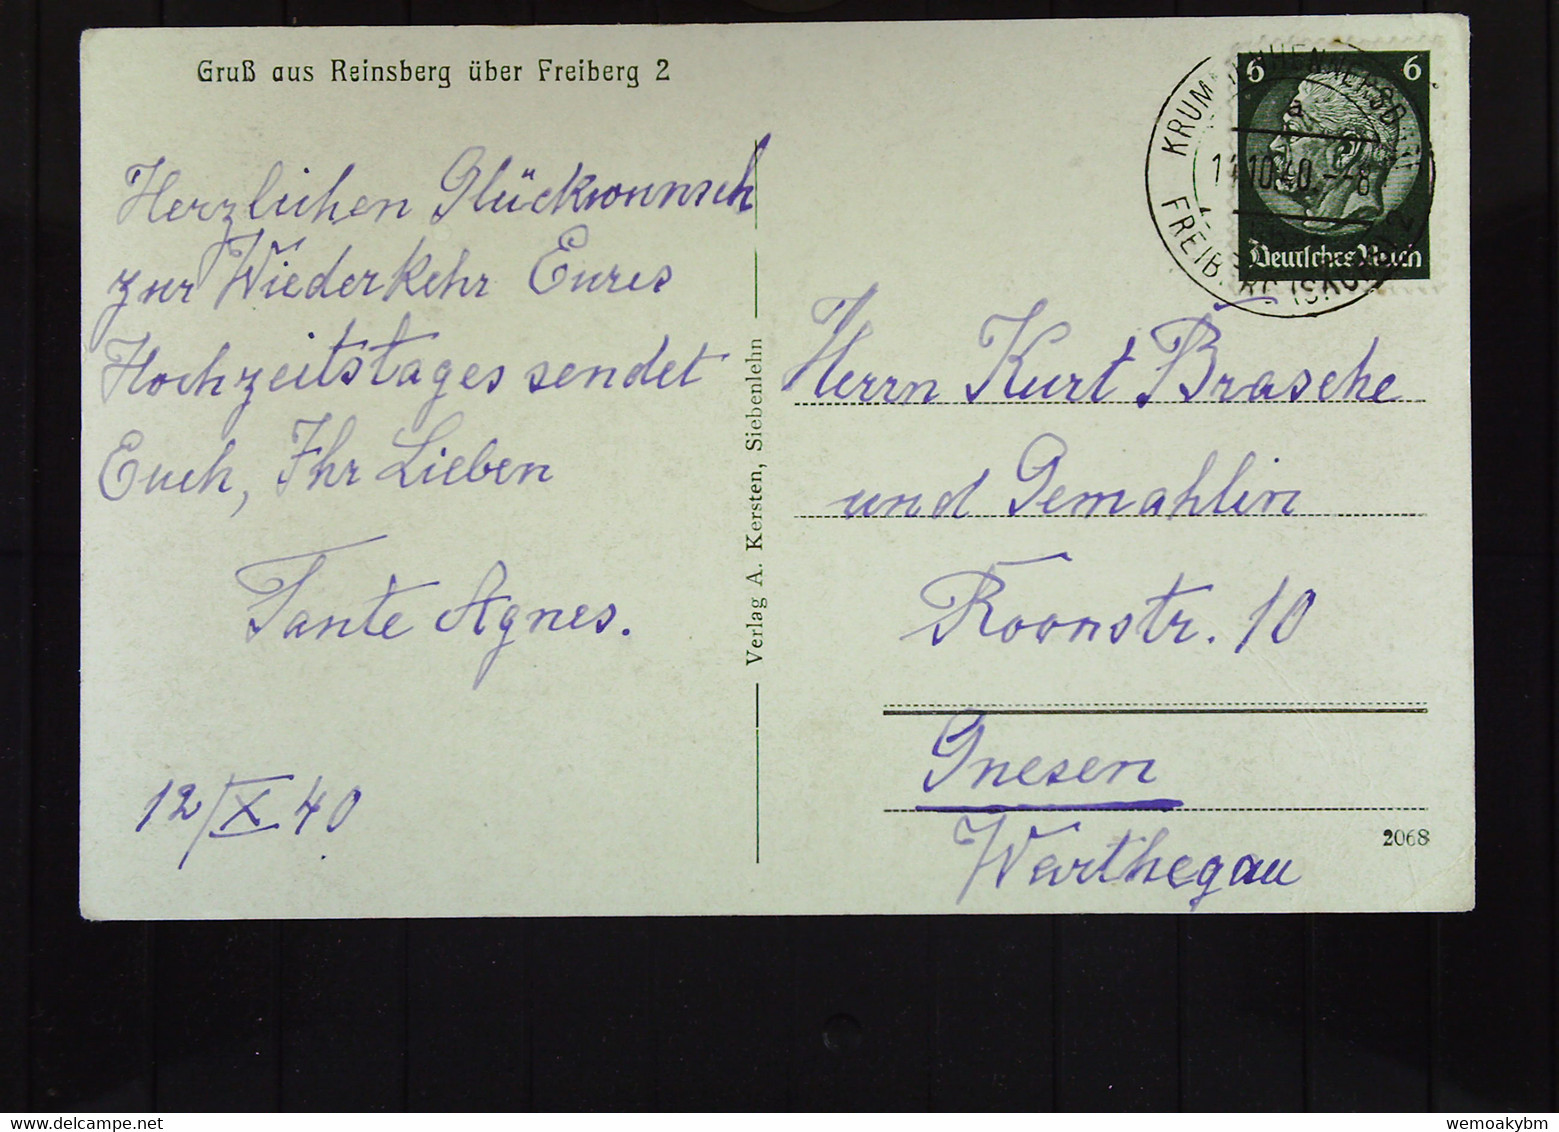 Gruß aus Reinsberg über Freiberg 2
Herzlichen Glückwunsch
zur Wiederkehr Eures
Hochzeitstages sendet
Euch, Ihr Lieben
Tante Agnes.
12/X 40
Verlag A. Kersten, Siebenlehn
6 6
Deutsches Reich
a
10.40.-8
Herrn Kurt Brasche
und Gemahlin
Roonstr. 10
Gnesen
Warthegau
2068
wemoakybm